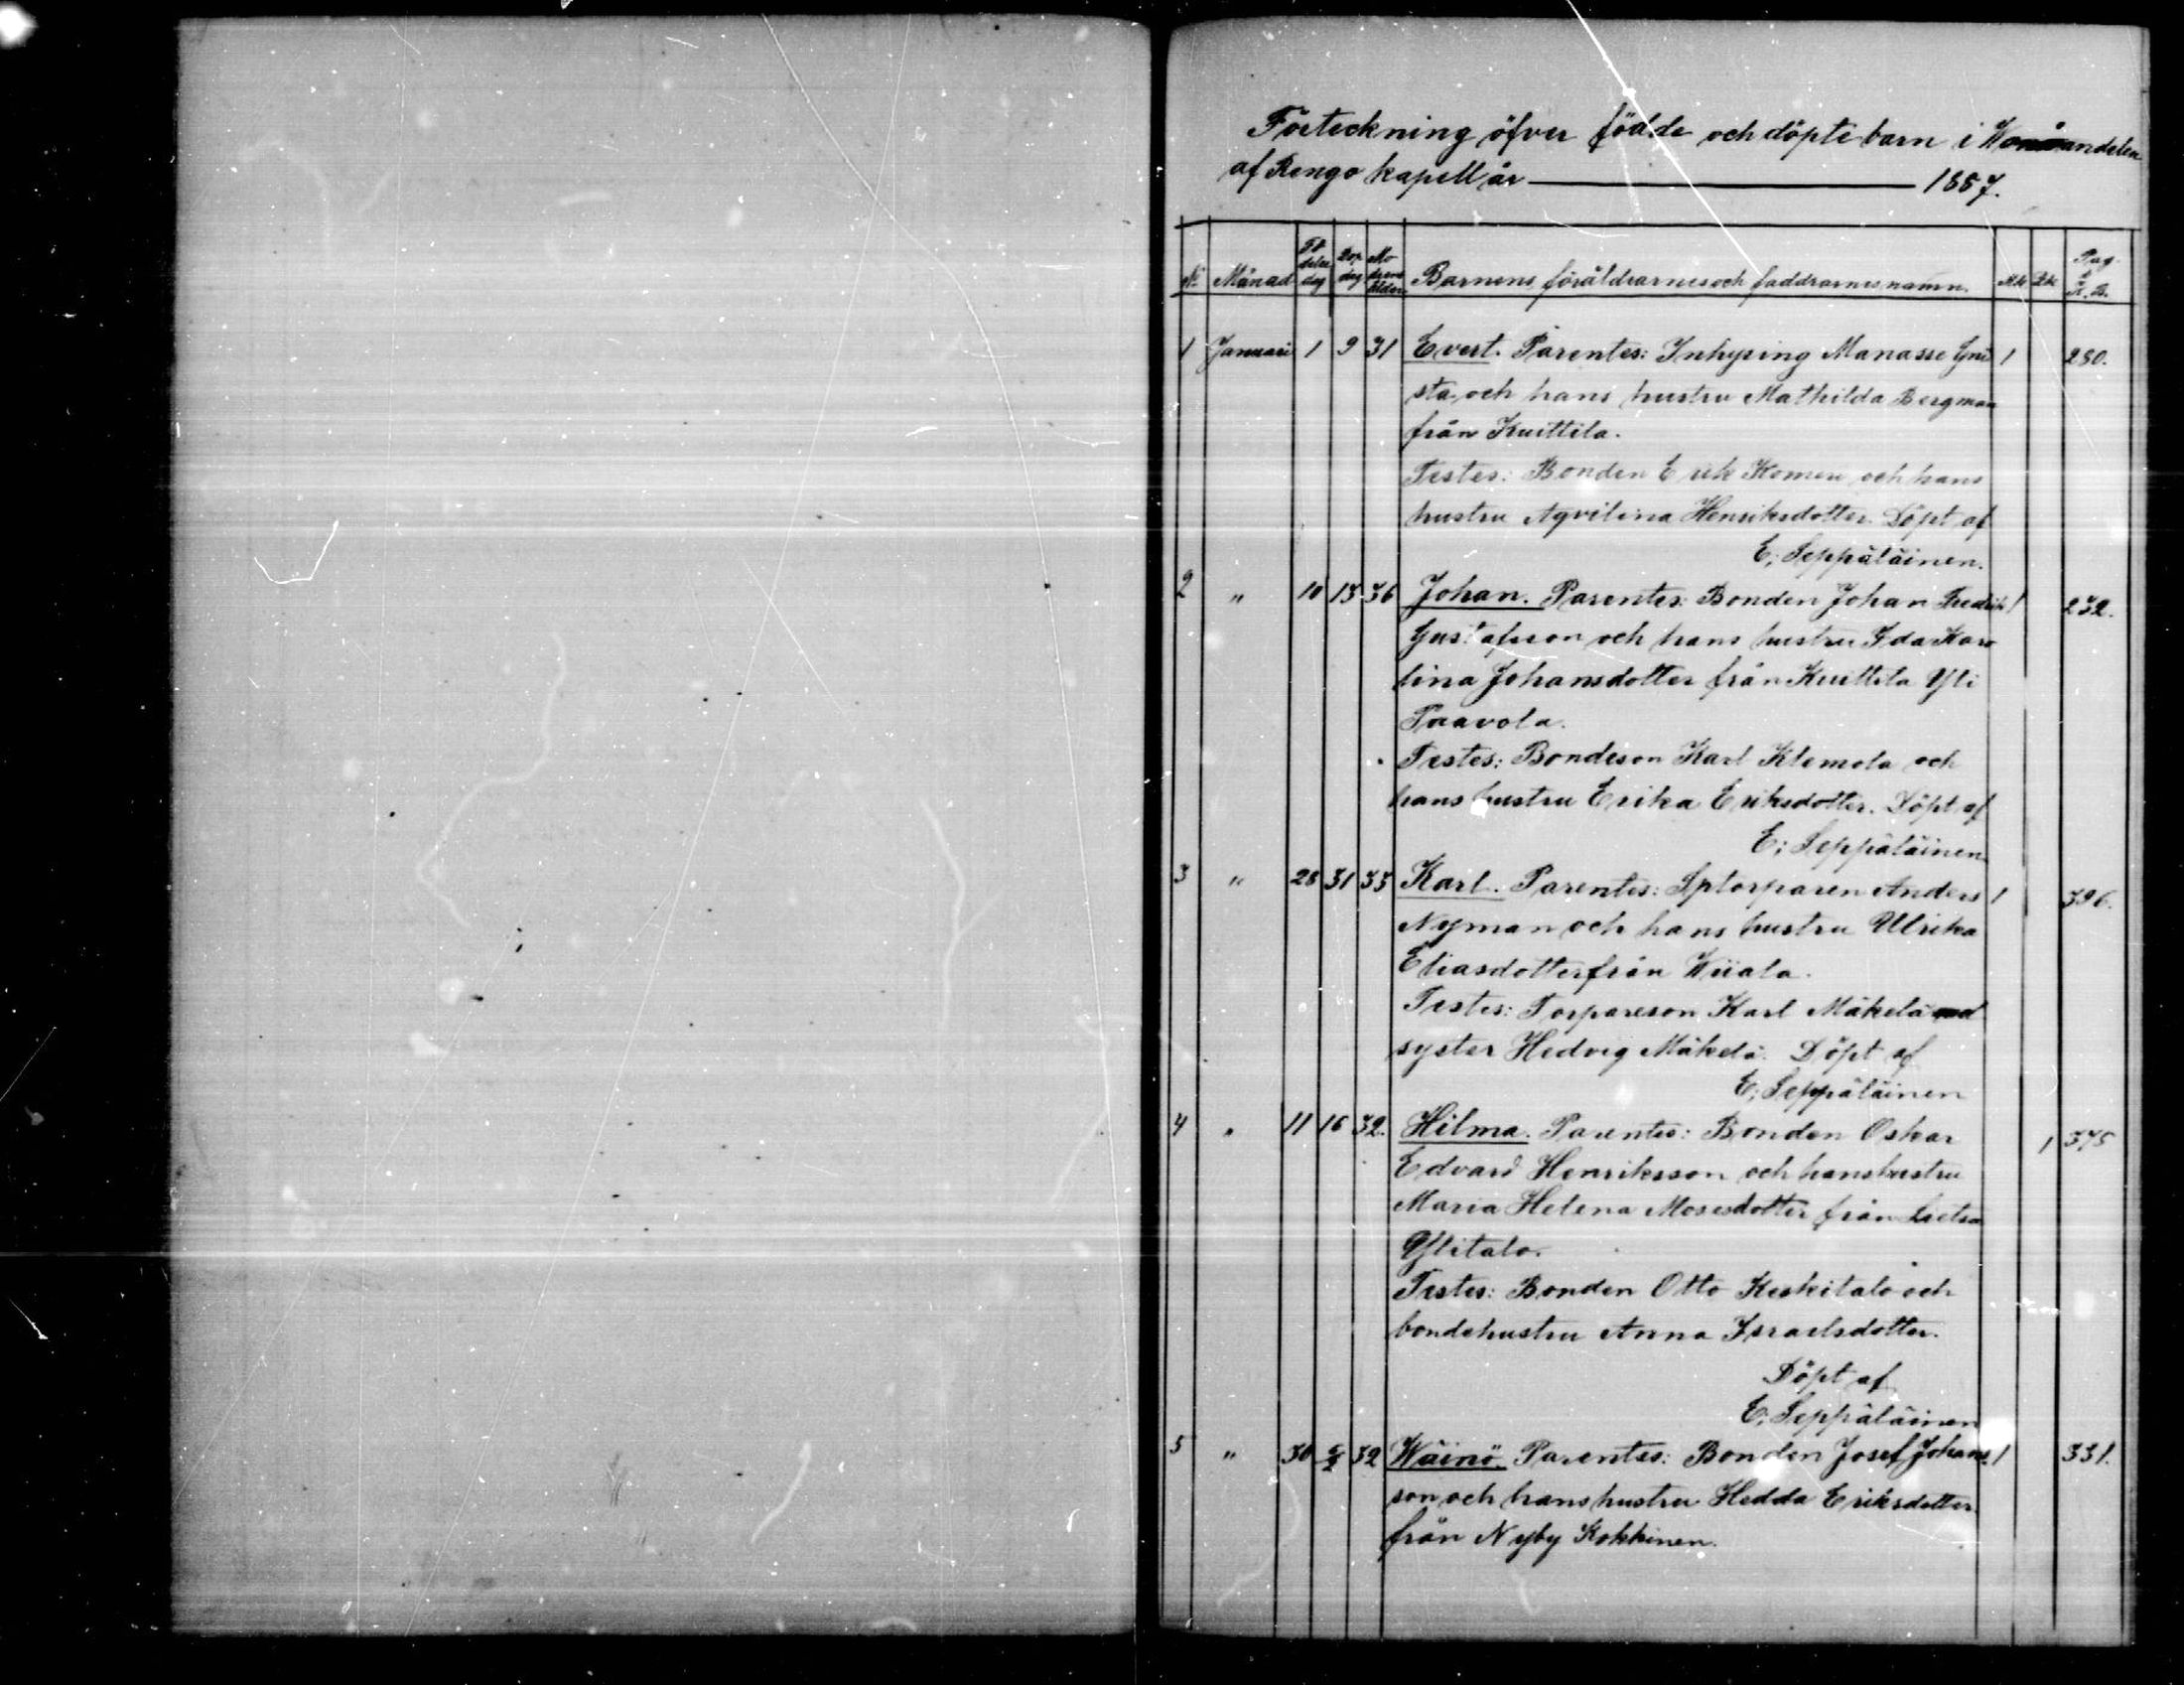 Förteckning öfver födde och döpte barn i Wanåandelen
af Rengo kapell år — 1887.
№ Månad Fö delse dag Dop dag Mo drens ålder Barnens, föräldrarnes och faddrarnes namn. Mk Qk Pag. i K. B.
1 Januari 1 9 31 Evert. Parentes: Inhysing Manasse Gni 1 280.
sta och hans hustru Mathilda Bergman
från Kuittila.
Testes: Bonden Erik Komen och hans
hustru Aqvilina Henriksdotter. Döpt af
E. Seppäläinen.
2 " 10 13 36 Johan. Parentes: Bonden Johan Fredrik 1 232.
Gustafsson och hans hustru Ida Karo
lina Johansdotter från Kuittila Yli
Paavola.
Testes: Bondeson Karl Klemola och
hans hustru Erika Eriksdotter. Döpt af
E; Seppäläinen
3 " 28 31 33 Karl. Parentes: Sptorparen Anders 1 396.
Nyman och hans hustru Ulrika
Eliasdotter från Wiiala.
Testes: Torpareson Karl Mäkelä med
syster Hedvig Mäkelä. Döpt af
E; Seppäläinen
4 " 11 16 32. Hilma. Parentes: Bonden Oskar 1 375
Edvard Henriksson och hans hustru
Maria Helena Mosesdotter från Lietsa
Ylitalo.
Testes: Bonden Otto Keskitalo och
bondehustru Anna Israelsdotter.
Döpt af
E; Seppäläinen
5 " 30 32 Wäinö. Parentes: Bonden Josef Johans 1 331.
son och hans hustru Hedda Eriksdotter
från Nyby Kokkinen.